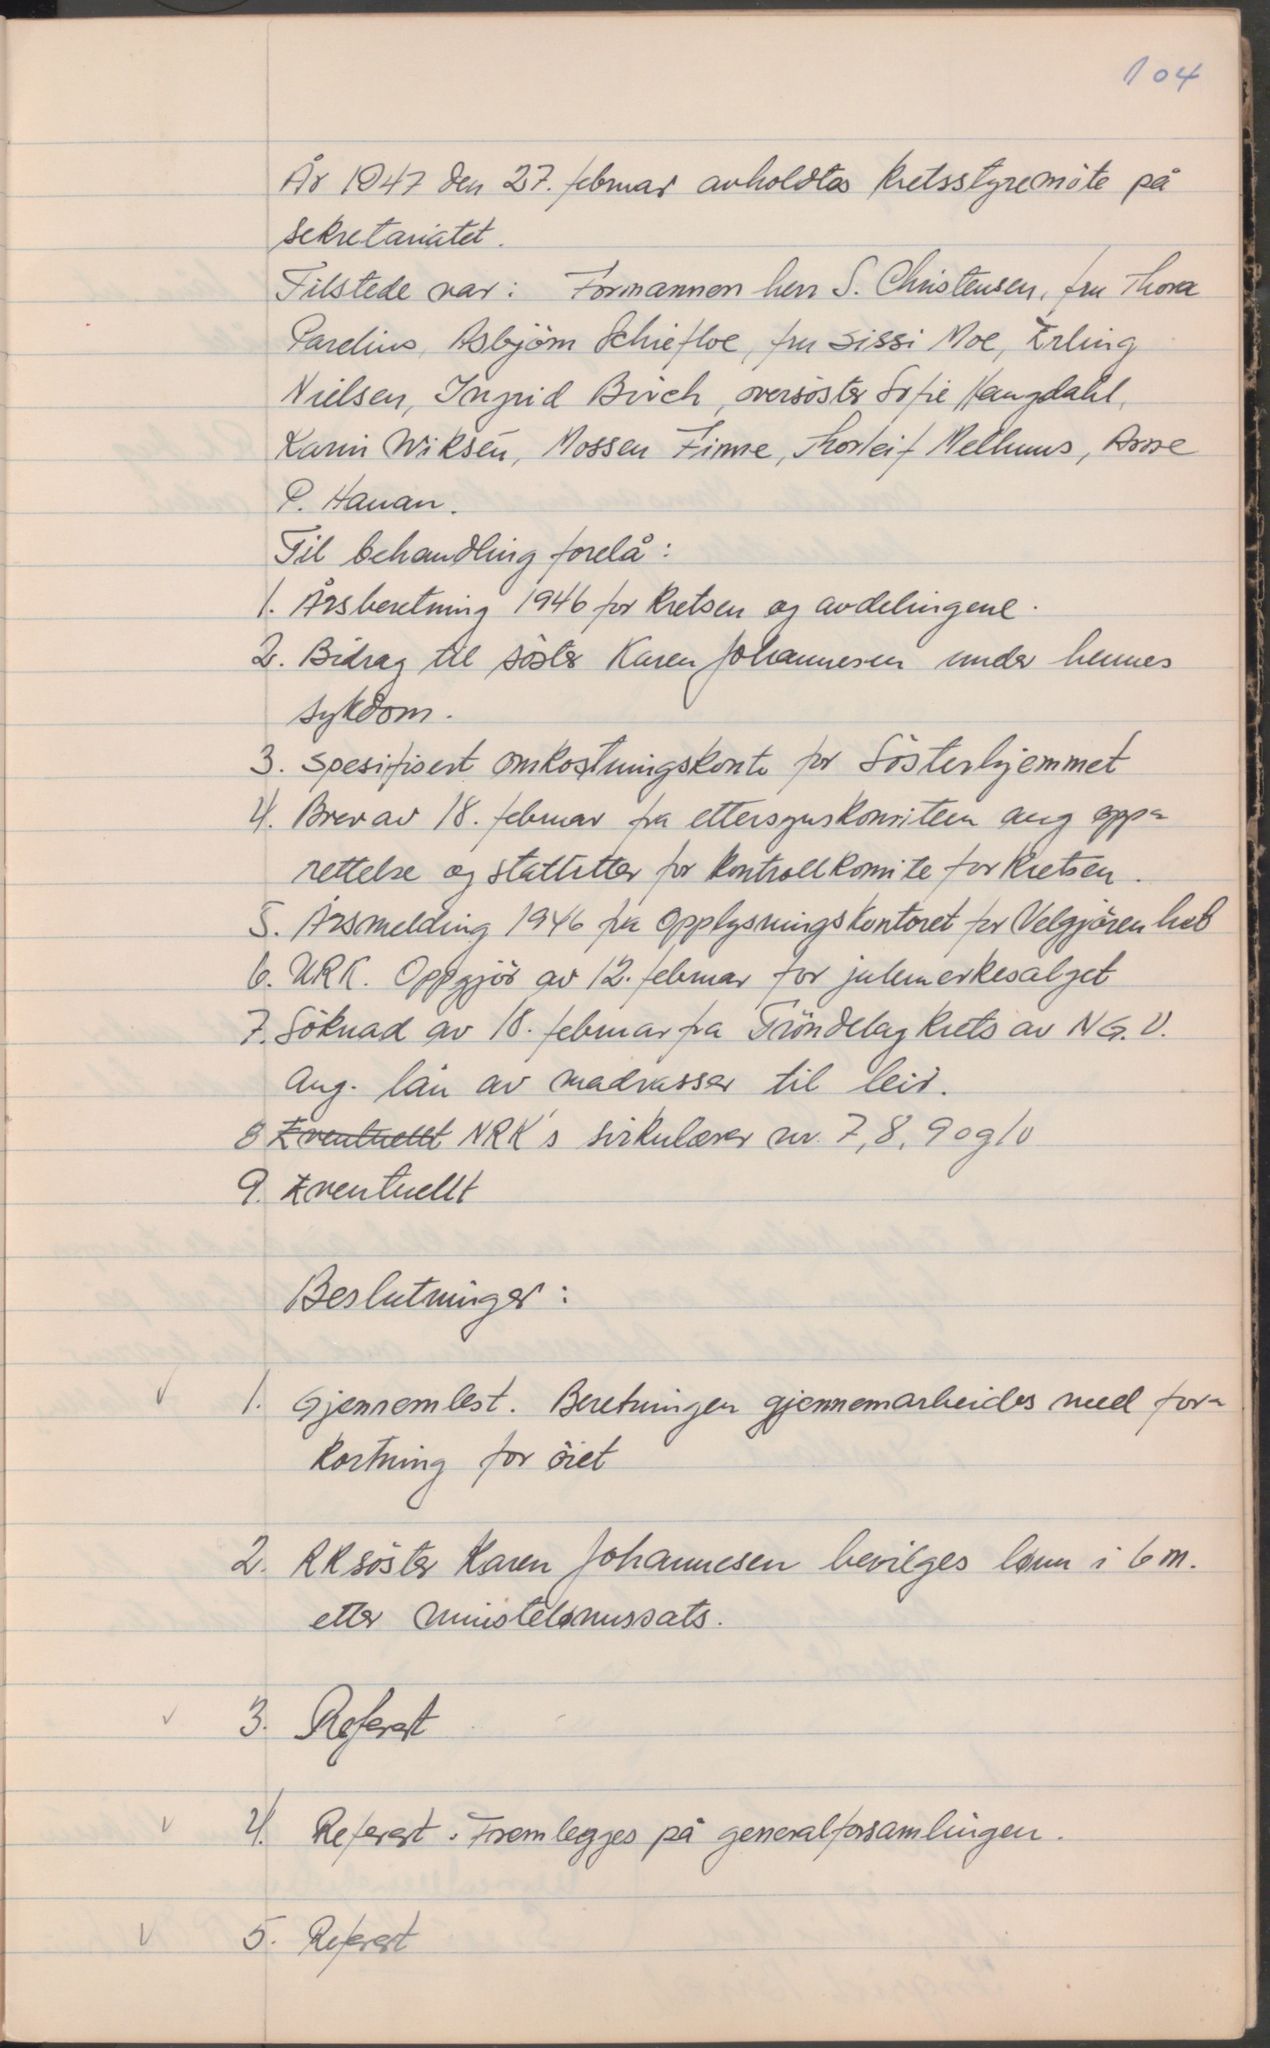 104
År 1947 den 27. februar avholdtes kretsstyremöte på
sekretariatet.
Tilstede var: Formannen herr S. Christensen, fru Thora
Parelius, Asbjörn Schiefloe, fru Sissi Moe, Erling
Nielsen, Ingrid Birch, oversöster Sofie Haugdahl,
Karin Wiksén, Mossen Finne, Thorleif Melhuus, Arne
P. Hauan.
Til behandling forelå:
1. Årsberetning 1946 for kretsen og avdelingene.
2. Bidrag til söster Karen Johannesen under hennes
sykdom.
3. Spesifisert omkostningskonto for Sösterhjemmet
4. Brev av 18. februar fra ettersynskomiteen ang opp-
rettelse og statutter for kontrollkomite for kretsen.
5. Årsmelding 1946 fra Opplysningskontoret for Velgjörenhet
6. NRK. Oppgjör av 12. februar for julemerkesalget
7. Söknad av 18. februar fra Tröndelag krets av N.G.U.
ang. lån av madrasser til leir.
8 Eventuellt NRK's sirkulærer nr. 7, 8, 9 og 10
9. Eventuellt
Beslutninger:
✓ 1. Gjennomlest. Beretningen gjennemarbeides med for-
kortning for öiet
2. RKsöster Karen Johannesen bevilges lønn i 6 m.
etter minstelønnssats.
✓ 3. Referert
✓ 4. Referert. Fremlegges på generalforsamlingen.
✓ 5. Referert